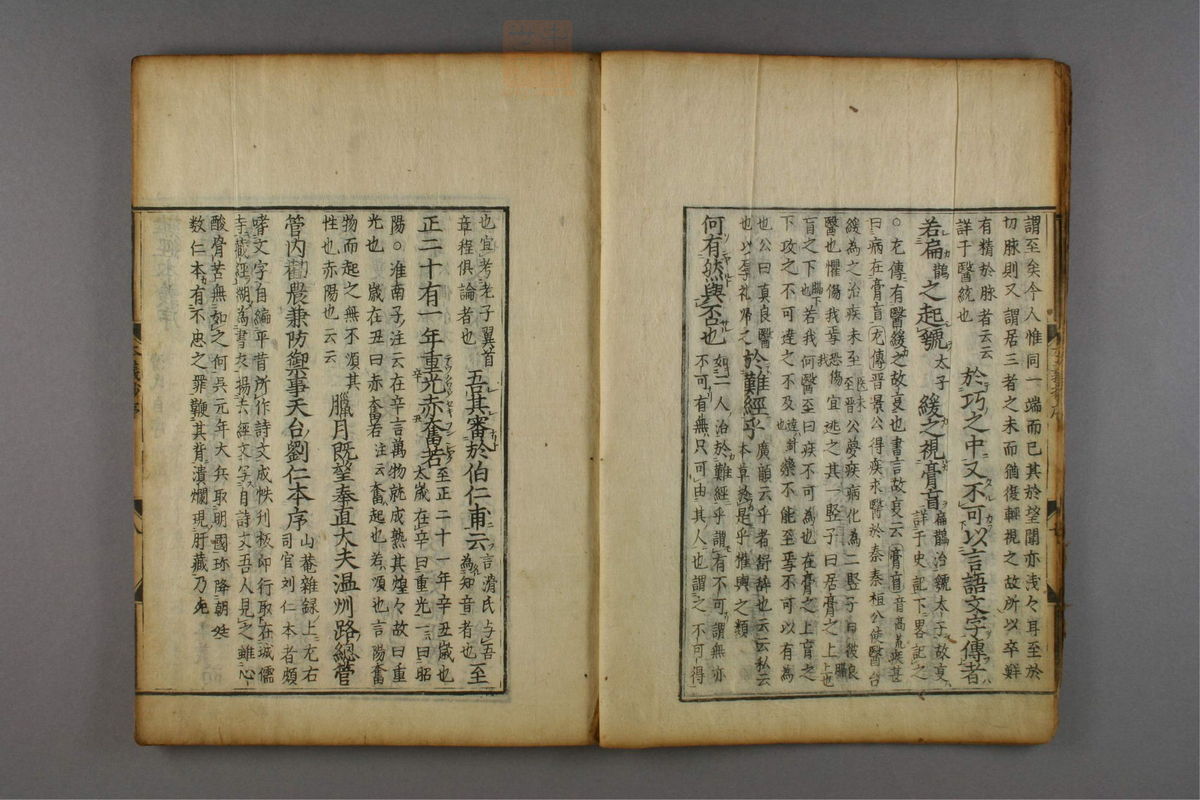 謂至矣今人惟同一端而已其於望聞亦浅々耳至於
切脉則又謂居三者之末而猶復輕視之故所以卒鮮
有精於脉者云云
詳于醫統也
於巧之中又不可以言語文字傳者
若扁鵲之起虢太子緩之視膏肓
扁鵲治虢太子故亥
詳于史記下畧記之
○左傳有醫緩之故亥也書言故亥云膏肓音高荒疾甚
曰病在膏肓左傳晋景公得疾求醫於秦秦桓公使醫
緩為之治疾未至至晋公夢疾病化為二竪子曰彼良
醫也懼傷我焉恐傷我宜逃之其一竪子曰居膏之上
肓之下也若我何醫至曰疾不可為也在膏之上肓之
下攻之不可達之不及達針藥不能至焉不可以有為
也公曰真良醫
也以厚礼帰之
於難經乎
廣韻云乎者舒辞也云云私云
本草於是乎惟與之類
何有然與否也
如二人治於難經乎謂有不可謂無亦
不可有無只可由其人也謂之不可得
也宜考老子翼首
章程俱論者也
吾其審於伯仁甫云
言滑氏与吾
為知音者也
至
正二十有一年重光赤奮若
至正二十一年辛丑歳也
太歳在辛曰重光一曰昭
陽○淮南子注云在辛言萬物就成熟其煌々故曰重
光也歳在丑曰赤奮若注云奮起也若順也言陽奮
物而起之無不須其
性也赤陽也云云
臘月既望奉直大夫温州路總管
管内勸農兼防禦事天台劉仁本序
山菴雜録上左右
司官刘仁本者頗
嗜文字自編平昔所作詩文成帙刊板印行取在城儒
寺藏經湖為書衣揚去經文字自詩文吾人見之雖心
酸骨苦無如之何呉元年大兵取明國珎降朝廷
数仁本有不忠之罪鞭其背潰爛現肝藏乃死